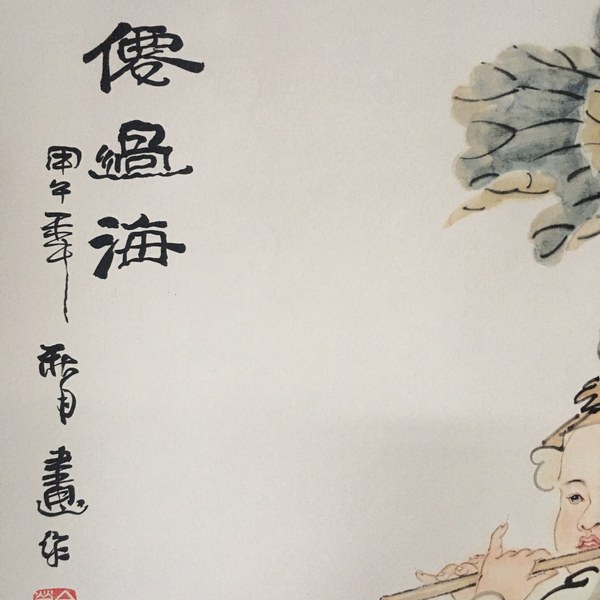 僊過海
甲午年秋月畫作